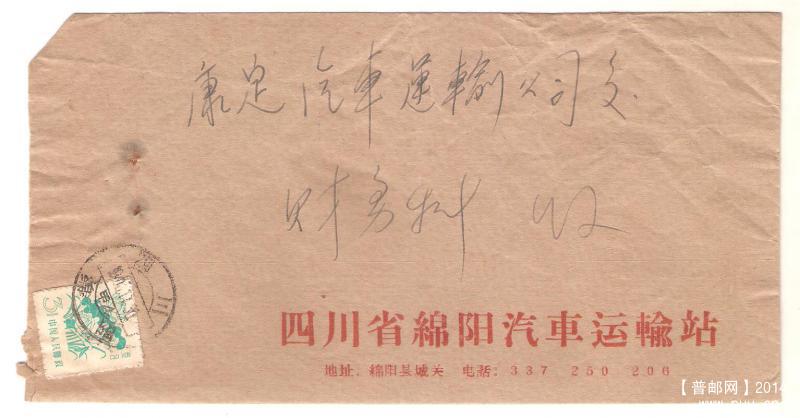 康定汽車運輸公司交
财务科 收
四川
3
中国人民郵政
四川省綿阳汽車运輸站
地址：綿阳县城关 电話：337 250 206
【普邮网】2014